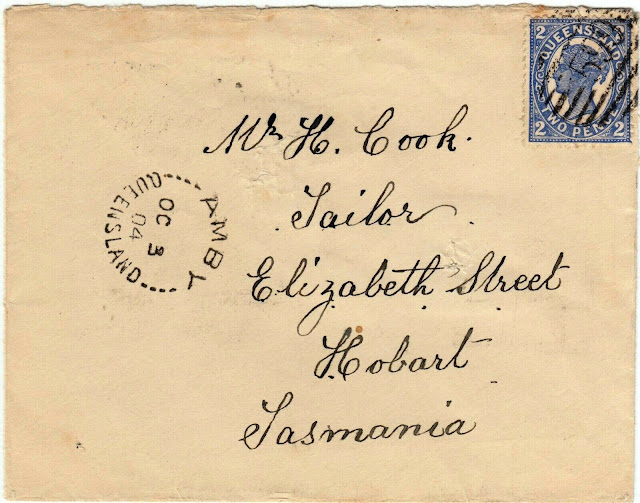 2 QUEENSLAND 2
2 TWO PENCE 2
Mr H. Cook.
Tailor
Elizabeth Street
Hobart
Tasmania
AMBY
OC 3
04
QUEENSLAND